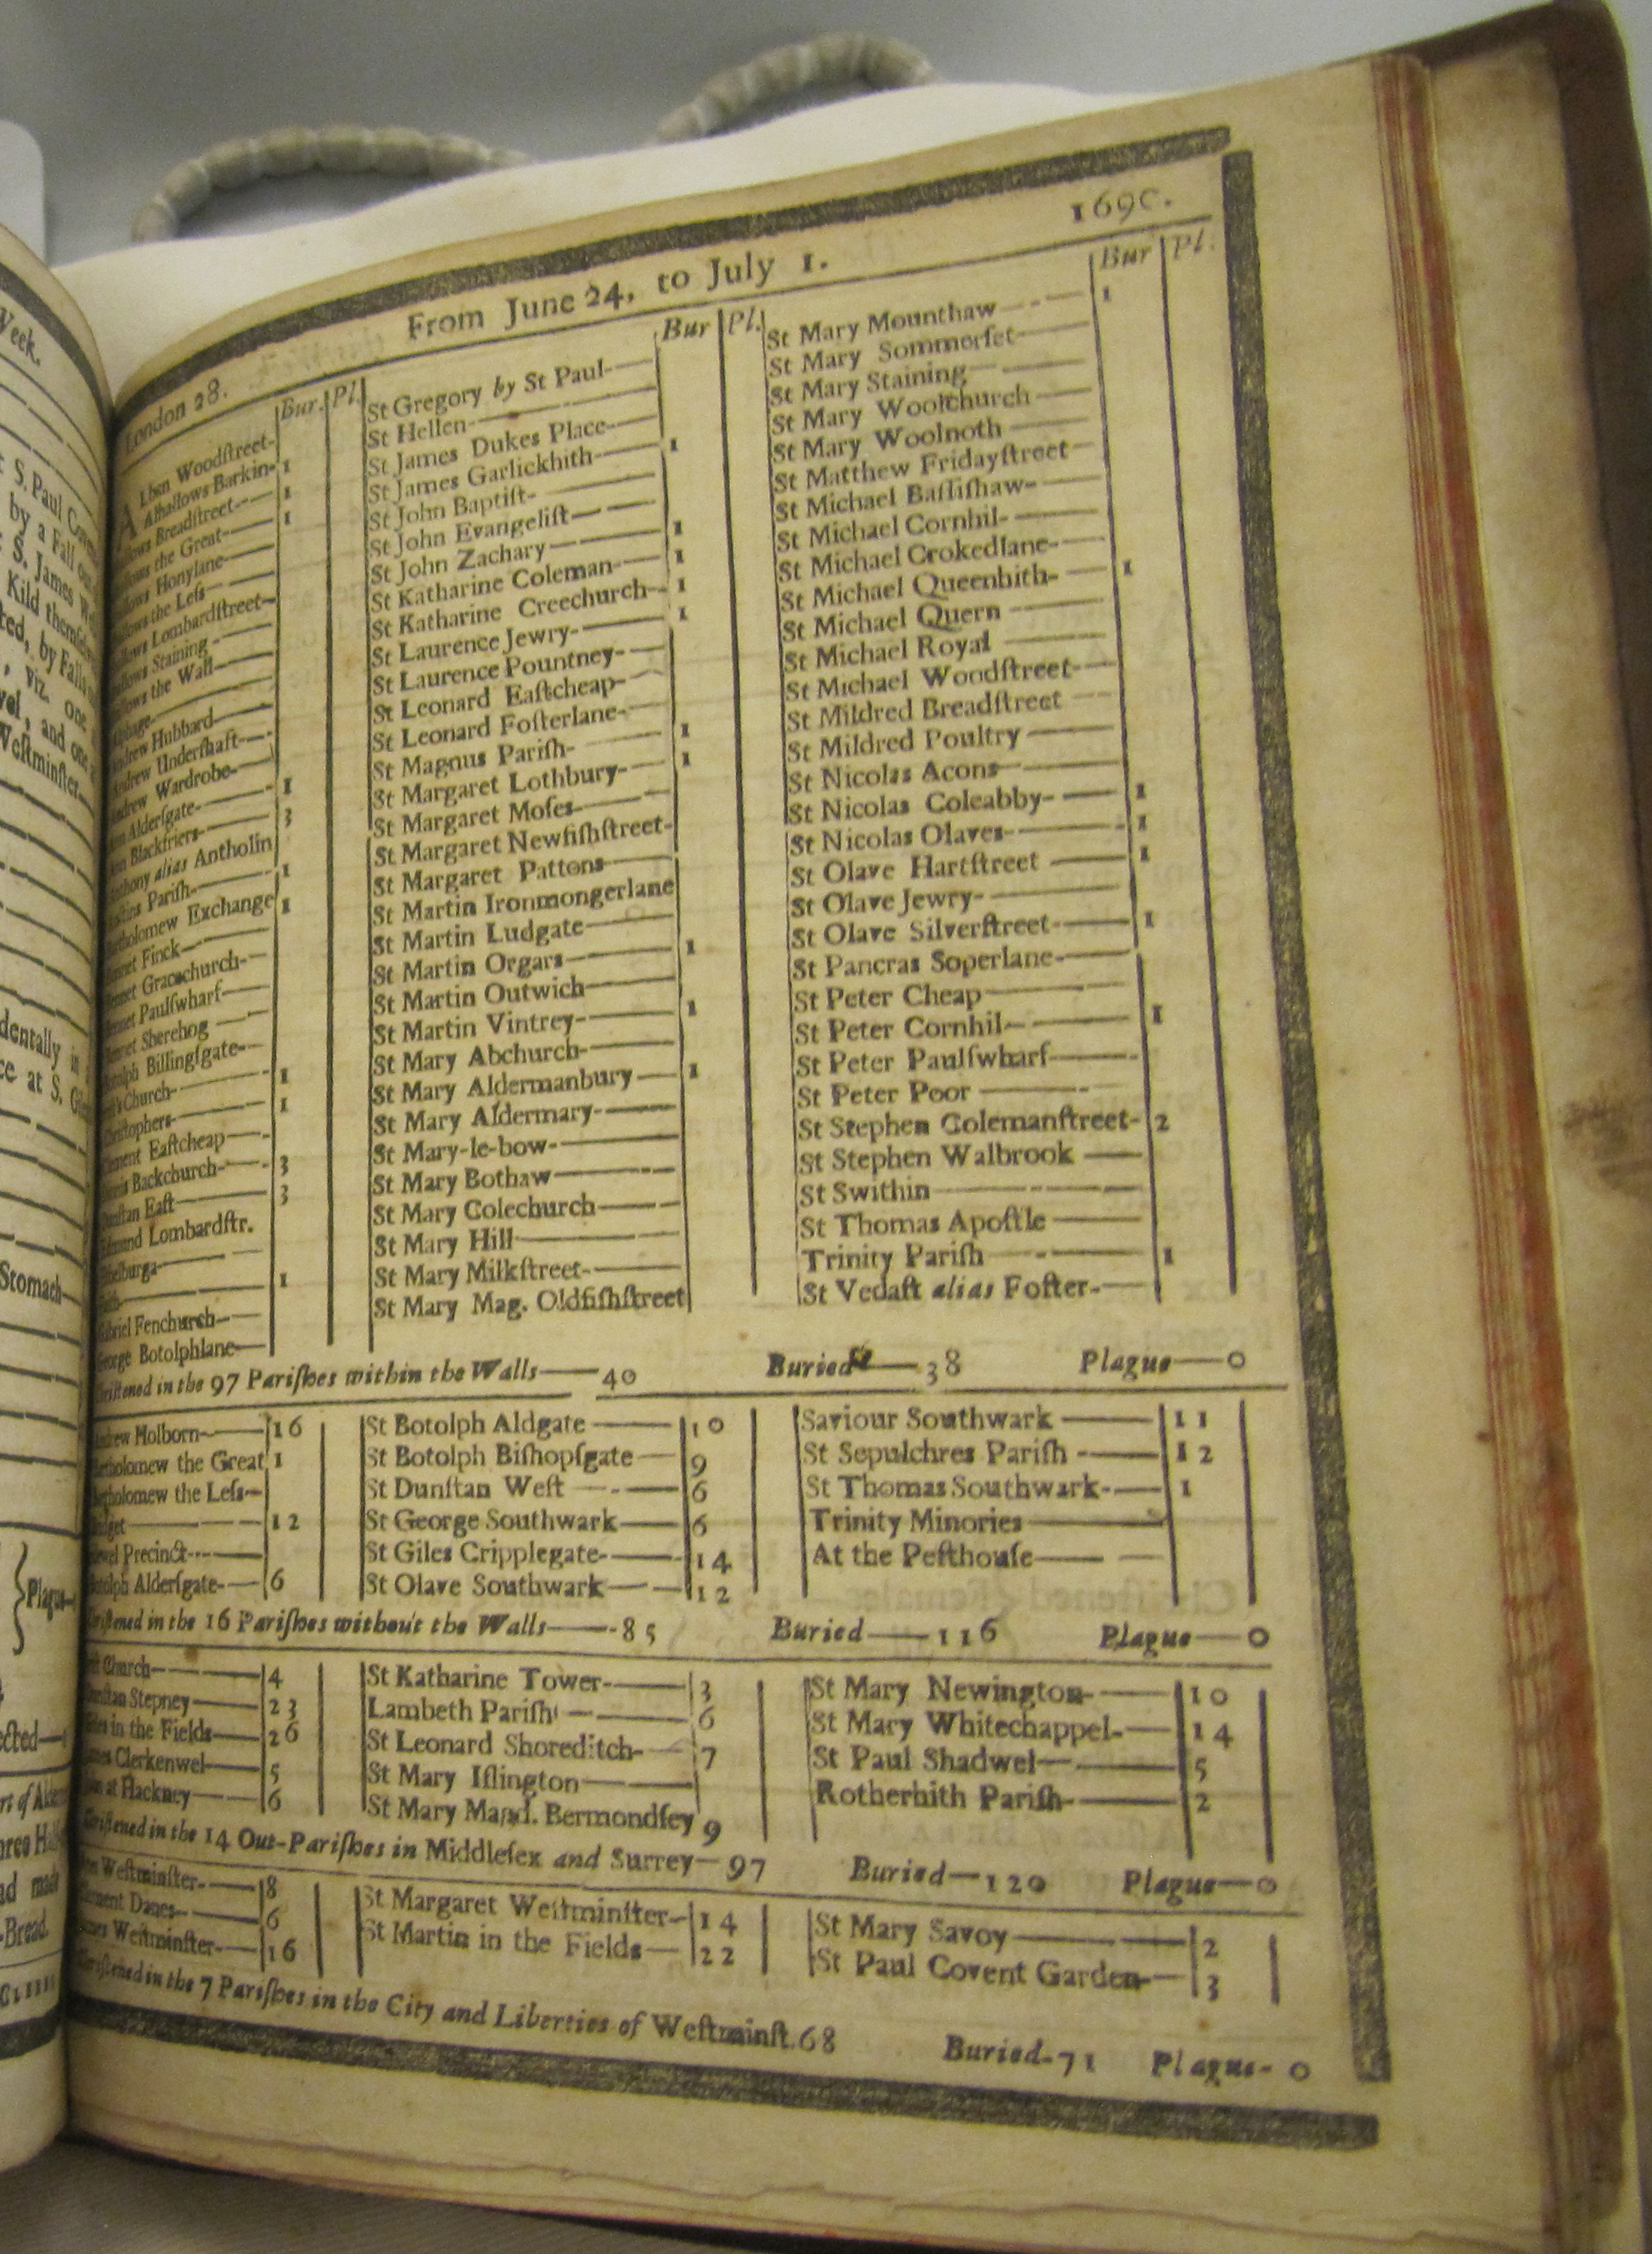 Week.
S. Paul
by a Fall
S. James
Kild
by Falls
viz. one
and one
Westminster
dentally in
at S.
Stomach
Plague
of
and made
Bread.
London 28. From June 24, to July 1. 169C.
Bur. Pl.
A Lban Woodstreet-
Alhallows Barkin- 1
Breadstreet- 1
the Great- 1
Honylane-
the Less-
Lombardstreet-
Staining-
the Wall-
Hubbard-
Undershaft-
Wardrobe-
Aldersgate- 1
Blackfriers- 3
alias Antholin
Parish- 1
Exchange 1
Finck-
Gracechurch-
Paulswharf-
Sherehog
Billingsgate-
Church- 1
1
Eastcheap-
Backchurch- 3
East- 3
Lombardstr.
1
Fenchurch-
Botolphlane-
Bur Pl.
St Gregory by St Paul-
St Hellen-
St James Dukes Place-
St James Garlickhith- 1
St John Baptist-
St John Evangelist-
St John Zachary- 1
St Katharine Coleman- 1
St Katharine Creechurch- 1
St Laurence Jewry- 1
St Laurence Pountney-
St Leonard Eastcheap-
St Leonard Fosterlane-
St Magnus Parish- 1
St Margaret Lothbury- 1
St Margaret Moses-
St Margaret Newfishstreet-
St Margaret Pattons-
St Martin Ironmongerlane
St Martin Ludgate-
St Martin Orgars- 1
St Martin Outwich-
St Martin Vintrey- 1
St Mary Abchurch-
St Mary Aldermanbury- 1
St Mary Aldermary-
St Mary-le-bow-
St Mary Bothaw-
St Mary Colechurch-
St Mary Hill-
St Mary Milkstreet-
St Mary Mag. Oldfishstreet
Bur Pl.
St Mary Mounthaw- 1
St Mary Sommerset-
St Mary Staining-
St Mary Woolchurch-
St Mary Woolnoth-
St Matthew Fridaystreet-
St Michael Bassishaw-
St Michael Cornhil-
St Michael Crokedlane-
St Michael Queenhith- 1
St Michael Quern
St Michael Royal
St Michael Woodstreet-
St Mildred Breadstreet
St Mildred Poultry-
St Nicolas Acons-
St Nicolas Coleabby- 1
St Nicolas Olaves- 1
St Olave Hartstreet- 1
St Olave Jewry-
St Olave Silverstreet- 1
St Pancras Soperlane-
St Peter Cheap-
St Peter Cornhil- 1
St Peter Paulswharf-
St Peter Poor-
St Stephen Colemanstreet- 2
St Stephen Walbrook-
St Swithin-
St Thomas Apostle-
Trinity Parish- 1
St Vedast alias Foster-
in the 97 Parishes within the Walls- 40 Buried- 38 Plague- 0
Holborn- 16
the Great 1
the Less-
12
Precinct-
Aldersgate- 6
St Botolph Aldgate- 10
St Botolph Bishopsgate- 9
St Dunstan West- 6
St George Southwark- 6
St Giles Cripplegate- 14
St Olave Southwark- 12
Saviour Southwark- 11
St Sepulchres Parish- 12
St Thomas Southwark- 1
Trinity Minories-
At the Pesthouse-
in the 16 Parishes without the Walls- 85 Buried- 116 Plague- 0
Church- 4
Stepney- 23
in the Fields- 26
Clerkenwel- 5
at Hackney- 6
St Katharine Tower- 3
Lambeth Parish- 6
St Leonard Shoreditch- 7
St Mary Islington-
St Mary Magd. Bermondsey 9
St Mary Newington- 10
St Mary Whitechappel- 14
St Paul Shadwel- 5
Rotherhith Parish- 2
in the 14 Out-Parishes in Middlesex and Surrey- 97 Buried- 120 Plague- 0
Westminster- 8
Danes- 6
Westminster- 16
St Margaret Westminster- 14
St Martin in the Fields- 22
St Mary Savoy- 2
St Paul Covent Garden- 3
in the 7 Parishes in the City and Liberties of Westminst. 68 Buried- 71 Plague- 0